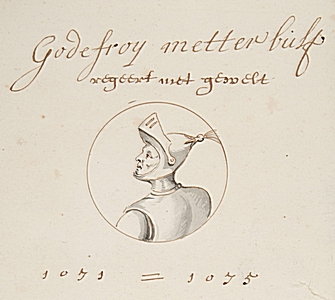 Godefroy metter bulss
regeert met gewelt
1071 = 1075